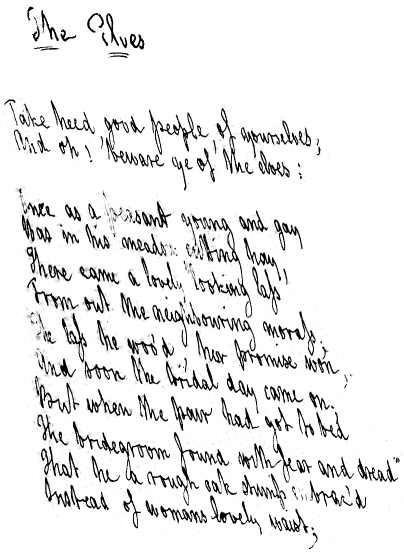 The Elves
Take heed good people, of yourselves;
And oh! beware ye of the elves:
Once as a peasant young and gay
Was in his meadow cutting hay,
There came a lovely looking lass
From out the neighbouring morass.
The lass he woo'd, her promise won;
And soon the bridal day came on.
But when the pair had got to bed
The bridegroom found with fear and dread
That he a rough oak stump embrac'd
Instead of womans lovely waist;